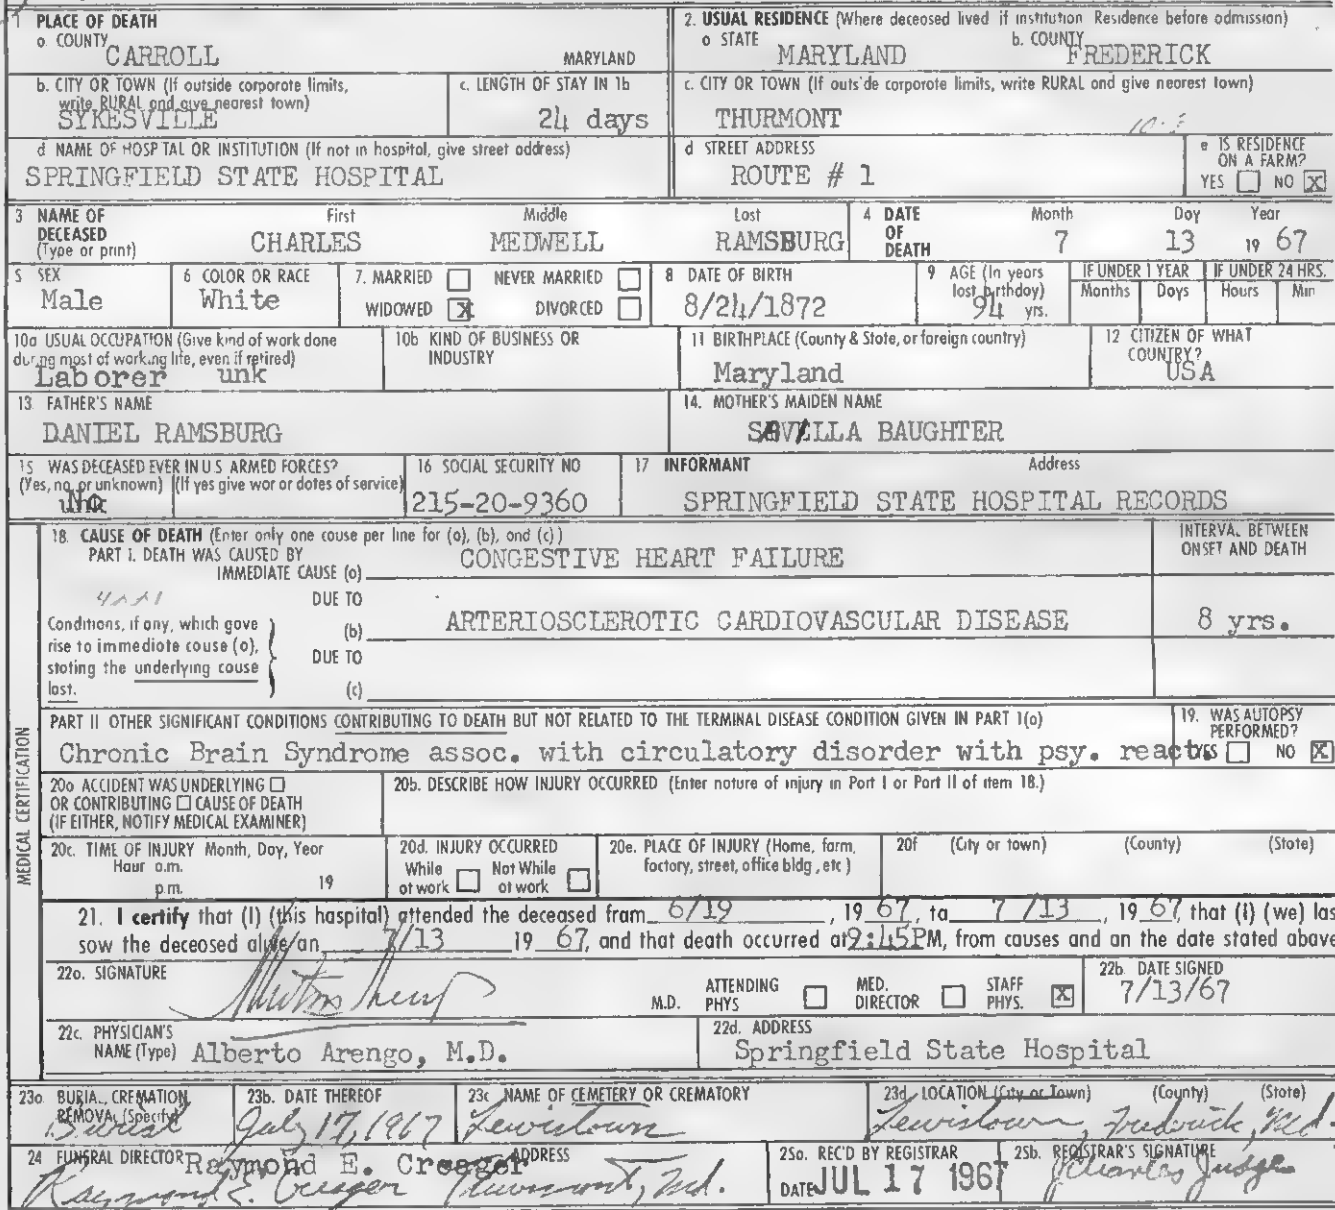 1 PLACE OF DEATH
a. COUNTY CARROLL MARYLAND
2. USUAL RESIDENCE (Where deceased lived if institution Residence before admission)
a STATE MARYLAND b. COUNTY FREDERICK
b. CITY OR TOWN (If outside corporate limits, write RURAL and give nearest town)
SYKESVILLE
c. LENGTH OF STAY IN 1b
24 days
c. CITY OR TOWN (If outside corporate limits, write RURAL and give nearest town)
THURMONT
d NAME OF HOSPITAL OR INSTITUTION (If not in hospital, give street address)
SPRINGFIELD STATE HOSPITAL
d STREET ADDRESS
ROUTE # 1
e IS RESIDENCE ON A FARM?
YES NO X
3 NAME OF DECEASED (Type or print)
First Middle Last
CHARLES MEDWELL RAMSBURG
4 DATE OF DEATH
Month Day Year
7 13 19 67
5 SEX
Male
6 COLOR OR RACE
White
7. MARRIED NEVER MARRIED
WIDOWED X DIVORCED
8 DATE OF BIRTH
8/24/1872
9 AGE (In years last birthday)
94 yrs.
IF UNDER 1 YEAR IF UNDER 24 HRS.
Months Days Hours Min
10a USUAL OCCUPATION (Give kind of work done during most of working life, even if retired)
Laborer unk
10b KIND OF BUSINESS OR INDUSTRY
11 BIRTHPLACE (County & State, or foreign country)
Maryland
12 CITIZEN OF WHAT COUNTRY?
USA
13. FATHER'S NAME
DANIEL RAMSBURG
14. MOTHER'S MAIDEN NAME
BAUGHTER
15 WAS DECEASED EVER IN U S ARMED FORCES?
(Yes, no, or unknown) (If yes give war or dates of service)
No
16 SOCIAL SECURITY NO
215-20-9360
17 INFORMANT Address
SPRINGFIELD STATE HOSPITAL RECORDS
MEDICAL CERTIFICATION
18. CAUSE OF DEATH (Enter only one cause per line for (a), (b), and (c))
PART I. DEATH WAS CAUSED BY
IMMEDIATE CAUSE (a) CONGESTIVE HEART FAILURE
INTERVAL BETWEEN ONSET AND DEATH
Conditions, if any, which gave rise to immediate cause (a), stating the underlying cause last.
DUE TO
(b) ARTERIOSCLEROTIC CARDIOVASCULAR DISEASE 8 yrs.
DUE TO
(c)
PART II OTHER SIGNIFICANT CONDITIONS CONTRIBUTING TO DEATH BUT NOT RELATED TO THE TERMINAL DISEASE CONDITION GIVEN IN PART I(a)
Chronic Brain Syndrome assoc. with circulatory disorder with psy. react.
19. WAS AUTOPSY PERFORMED?
YES NO X
20a ACCIDENT WAS UNDERLYING
OR CONTRIBUTING CAUSE OF DEATH
(IF EITHER, NOTIFY MEDICAL EXAMINER)
20b. DESCRIBE HOW INJURY OCCURRED (Enter nature of injury in Part I or Part II of item 18.)
20c. TIME OF INJURY Month, Day, Year
Hour a.m.
p.m. 19
20d. INJURY OCCURRED
While at work Not While at work
20e. PLACE OF INJURY (Home, farm, factory, street, office bldg, etc)
20f (City or town) (County) (State)
21. I certify that (I) (this hospital) attended the deceased from 6/19, 19 67, to 7/13, 19 67, that (I) (we) las
saw the deceased alive on 7/13 19 67, and that death occurred at 9:45PM, from causes and on the date stated above
22a. SIGNATURE
M.D. ATTENDING PHYS MED. DIRECTOR STAFF PHYS. X
22b. DATE SIGNED
7/13/67
22c. PHYSICIAN'S NAME (Type) Alberto Arengo, M.D.
22d. ADDRESS
Springfield State Hospital
23a BURIAL, CREMATION, REMOVAL (Specify)
Burial
23b. DATE THEREOF
July 17, 1967
23c NAME OF CEMETERY OR CREMATORY
Lewistown
23d. LOCATION (City or Town) (County) (State)
Lewistown, Frederick, Md.
24 FUNERAL DIRECTOR ADDRESS
Raymond E. Creager
Raymond E. Creager Thurmont, Md.
25a. REC'D BY REGISTRAR
DATE JUL 17 1967
25b. REGISTRAR'S SIGNATURE
Charles Judge